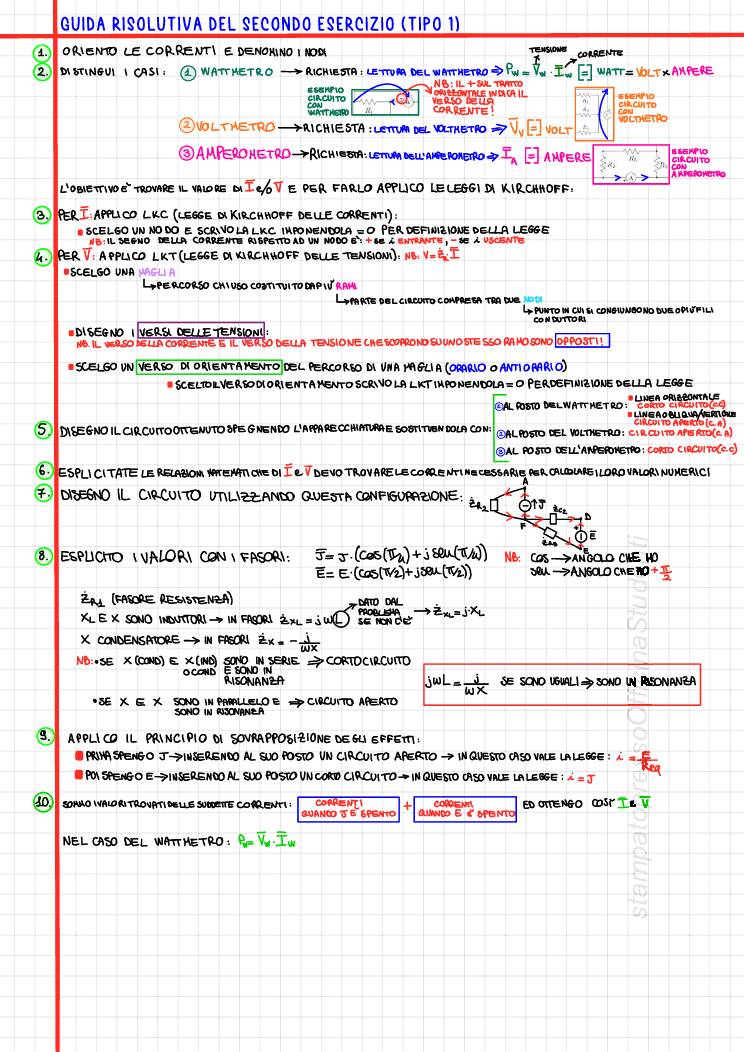 GUIDA RISOLUTIVA DEL SECONDO ESERCIZIO (TIPO 1)
1. ORIENTO LE CORRENTI E DENOMINO I NODI
TENSIONE CORRENTE
2. DISTINGUI I CASI: ① WATTMETRO → RICHIESTA: LETTURA DEL WATTMETRO ⇒ Pw = V̅w · I̅w [=] WATT = VOLT × AMPERE
ESEMPIO CIRCUITO CON WATTMETRO
NB: IL + SUL TRATTO ORIZZONTALE INDICA IL VERSO DELLA CORRENTE!
② VOLTMETRO → RICHIESTA: LETTURA DEL VOLTMETRO ⇒ V̅v [=] VOLT
ESEMPIO CIRCUITO CON VOLTMETRO
③ AMPEROMETRO → RICHIESTA: LETTURA DELL'AMPEROMETRO ⇒ I̅A [=] AMPERE
ESEMPIO CIRCUITO CON AMPEROMETRO
L'OBIETTIVO E' TROVARE IL VALORE DI I̅ e/o V̅ E PER FARLO APPLICO LE LEGGI DI KIRCHHOFF:
3. PER I̅: APPLICO LKC (LEGGE DI KIRCHHOFF DELLE CORRENTI):
SCELGO UN NODO E SCRIVO LA LKC IMPONENDOLA = 0 PER DEFINIZIONE DELLA LEGGE
NB: IL SEGNO DELLA CORRENTE RISPETTO AD UN NODO E': + se i ENTRANTE, - SE i USCENTE
4. PER V̅: APPLICO LKT (LEGGE DI KIRCHHOFF DELLE TENSIONI): NB: V = Ż · I̅
SCELGO UNA MAGLIA
↳ PERCORSO CHIUSO COSTITUITO DA PIU' RAMI
↳ PARTE DEL CIRCUITO COMPRESA TRA DUE NODI
↳ PUNTO IN CUI SI CONGIUNGONO DUE O PIU' FILI CONDUTTORI
DISEGNO I VERSI DELLE TENSIONI:
NB. IL VERSO DELLA CORRENTE E IL VERSO DELLA TENSIONE CHE SCORRONO SU UNO STESSO RAMO SONO OPPOSTI!
SCELGO UN VERSO DI ORIENTAMENTO DEL PERCORSO DI UNA MAGLIA (ORARIO O ANTIORARIO)
SCELTO IL VERSO DI ORIENTAMENTO SCRIVO LA LKT IMPONENDOLA = 0 PER DEFINIZIONE DELLA LEGGE
5. DISEGNO IL CIRCUITO OTTENUTO SPEGNENDO L'APPARECCHIATURA E SOSTITUENDOLA CON:
① AL POSTO DEL WATTMETRO: LINEA ORIZZONTALE CORTO CIRCUITO (C.C)
LINEA OBLIQUA/VERTICALE CIRCUITO APERTO (C.A)
② AL POSTO DEL VOLTMETRO: CIRCUITO APERTO (C.A)
③ AL POSTO DELL'AMPEROMETRO: CORTO CIRCUITO (C.C)
6. ESPLICITATE LE RELAZIONI MATEMATICHE DI I̅ e V̅ DEVO TROVARE LE CORRENTI NECESSARIE PER CALCOLARE I LORO VALORI NUMERICI
7. DISEGNO IL CIRCUITO UTILIZZANDO QUESTA CONFIGURAZIONE:
A
J̅
F
D
E̅
8. ESPLICITO I VALORI CON I FASORI: J̅ = J · (COS(π/4) + j sen(π/4))
E̅ = E · (COS(π/2) + j sen(π/2))
NB: COS → ANGOLO CHE HO
sen → ANGOLO CHE HO + π/2
ŻR1 (FASORE RESISTENZA)
XL E X SONO INDUTTORI → IN FASORI ŻXL = jωL → DATO DAL PROBLEMA SE NON C'E' → ŻXL = j·XL
X CONDENSATORE → IN FASORI ŻX = - j/ωX
NB: • SE X (COND) E X (IND) SONO IN SERIE ⇒ CORTOCIRCUITO
O COND E SONO IN RISONANZA
jωL = j/ωX SE SONO UGUALI ⇒ SONO IN RISONANZA
• SE X E X SONO IN PARALLELO E SONO IN RISONANZA ⇒ CIRCUITO APERTO
9. APPLICO IL PRINCIPIO DI SOVRAPPOSIZIONE DEGLI EFFETTI:
PRIMA SPENGO J → INSERENDO AL SUO POSTO UN CIRCUITO APERTO → IN QUESTO CASO VALE LA LEGGE: i = E/Req
POI SPENGO E → INSERENDO AL SUO POSTO UN CORTO CIRCUITO → IN QUESTO CASO VALE LA LEGGE: i = J
10. SOMMO I VALORI TROVATI DELLE SUDDETTE CORRENTI: CORRENTI QUANDO J E' SPENTO + CORRENTI QUANDO E E' SPENTO ED OTTENGO COSI' I̅ e V̅
NEL CASO DEL WATTMETRO: Pw = V̅w · I̅w